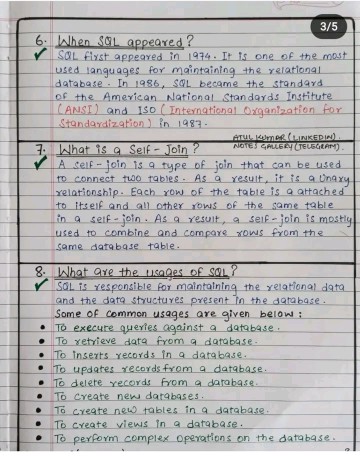 3/5
6. When SQL appeared?
SQL first appeared in 1974. It is one of the most
used languages for maintaining the relational
database. In 1986, SQL became the standard
of the American National Standards Institute
(ANSI) and ISO (International Organization for
Standardization) in 1987.
ATUL KUMAR (LINKEDIN).
NOTES GALLERY (TELEGRAM).
7. What is a Self-Join?
A self-join is a type of join that can be used
to connect two tables. As a result, it is a unary
relationship. Each row of the table is a attached
to itself and all other rows of the same table
in a self-join. As a result, a self-join is mostly
used to combine and compare rows from the
same database table.
8. What are the usages of SQL?
SQL is responsible for maintaining the relational data
and the data structures present in the database.
Some of common usages are given below:
• To execute queries against a database.
• To retrieve data from a database.
• To inserts records in a database.
• To updates records from a database.
• To delete records from a database.
• To create new databases.
• To create new tables in a database.
• To create views in a database.
• To perform complex operations on the database.